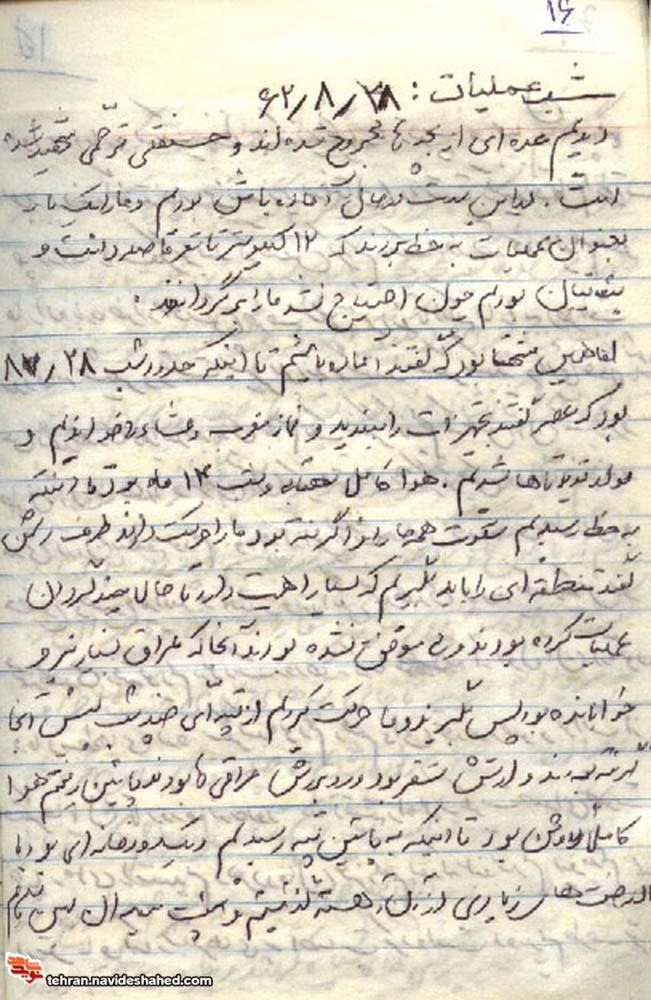 ۱۶
شب عملیات: ۶۲/۸/۲۸
دیدیم عده ای از بچه ها مجروح شده اند و حسنقلی ترحمی شهید شده
است. در این مدت در حال آماده باش بودیم و ما را یک بار
بعنوان عملیات به خط بردند که ۱۲ کیلومتر تا مقر فاصله داشت و
پشتیبان بودیم چون احتیاج نشد ما را برگرداندند.
گفتند آماده باشیم تا اینکه حدود شب ۲۸/۸
بود که عصر گفتند تجهیزات را ببندید و نماز مغرب و عشاء را خواندیم و
سوار تویوتاها شدیم. هوا کاملا مهتابی و شب ۱۴ ماه بود تا اینکه
به خط رسیدیم سکوت همه جا را فرا گرفته بود و ما را حرکت دادند طرف
گفتند منطقه ای را باید بگیریم که بسیار اهمیت دارد تا حالا چند گردان
عملیات کرده بودند ولی موفق نشده بودند آنجا که عراق بسیار نیرو
خوابانده بود پس بگیرند و ما حرکت کردیم از تپه ای که چند شب پیش آنجا
گرفته بودند و ارتش مستقر بود و روبرویش عراقی ها بودند پائین رفتیم هوا
کاملا روشن بود تا اینکه به پائین تپه رسیدیم و یک رودخانه ای بود با
درخت های زیادی از آن آهسته گذشتیم و به سمت میدان مین
tehran.navideshahed.com